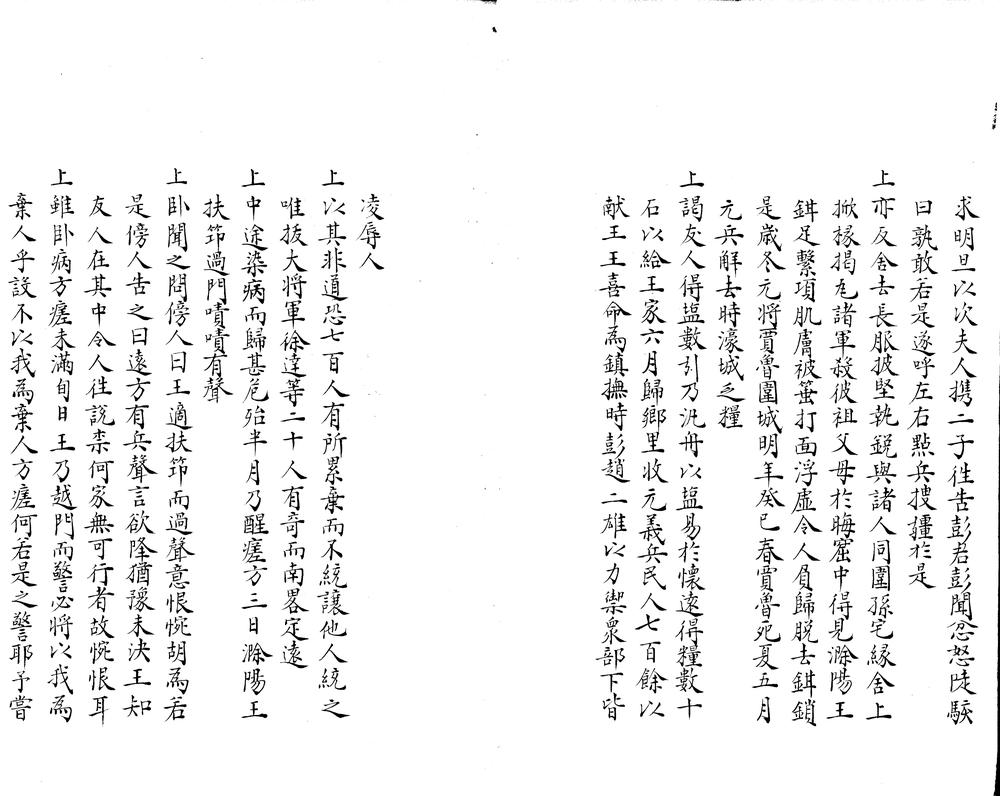 求明旦以次夫人携二子徃告彭君彭聞忿怒陡駭
曰孰敢若是遂呼左右㸃兵搜𤴁於是
上亦反舎去長服披堅執銳與諸人同圍孫宅緣舎上
掀椽揭瓦諸軍殺彼祖父母於晦窟中得見滁陽王
鉺足繫項肌膚被箠打面浮虛令人負歸脫去鉺鎖
是歲冬元將賈魯圍城明年癸巳春賈魯死夏五月
元兵解去時濠城乏糧
上謁友人得塩數引乃汎舟以塩易於懷遠得糧數十
石以給王家六月歸鄉里收元義兵民人七百餘以
献王王喜命為鎮撫時彭趙二雄以力禦衆部下皆
凌辱人
上以其非道恐七百人有所累棄而不統讓他人統之
唯拔大将軍徐達等二十人有奇而南畧定遠
上中途染病而歸甚危殆半月乃醒瘥方三日滁陽王
扶筇過門嘖嘖有聲
上卧聞之問傍人曰王適扶筇而過聲意恨惋胡為若
是傍人告之曰遠方有兵聲言欲降猶豫未決王知
友人在其中令人徃説柰何家無可行者故惋恨耳
上雖卧病方瘥未滿旬日王乃越門而警必将以我為
棄人乎設不以我為棄人方瘥何若是之警耶予嘗